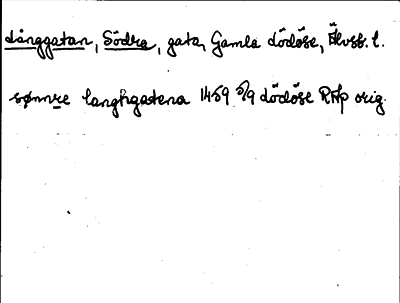 Långgatan, Södra, gata, Gamla Lödöse, Älvsb. l.
sønnre langhgadena 1459 5/9 Lödöse RAp orig.